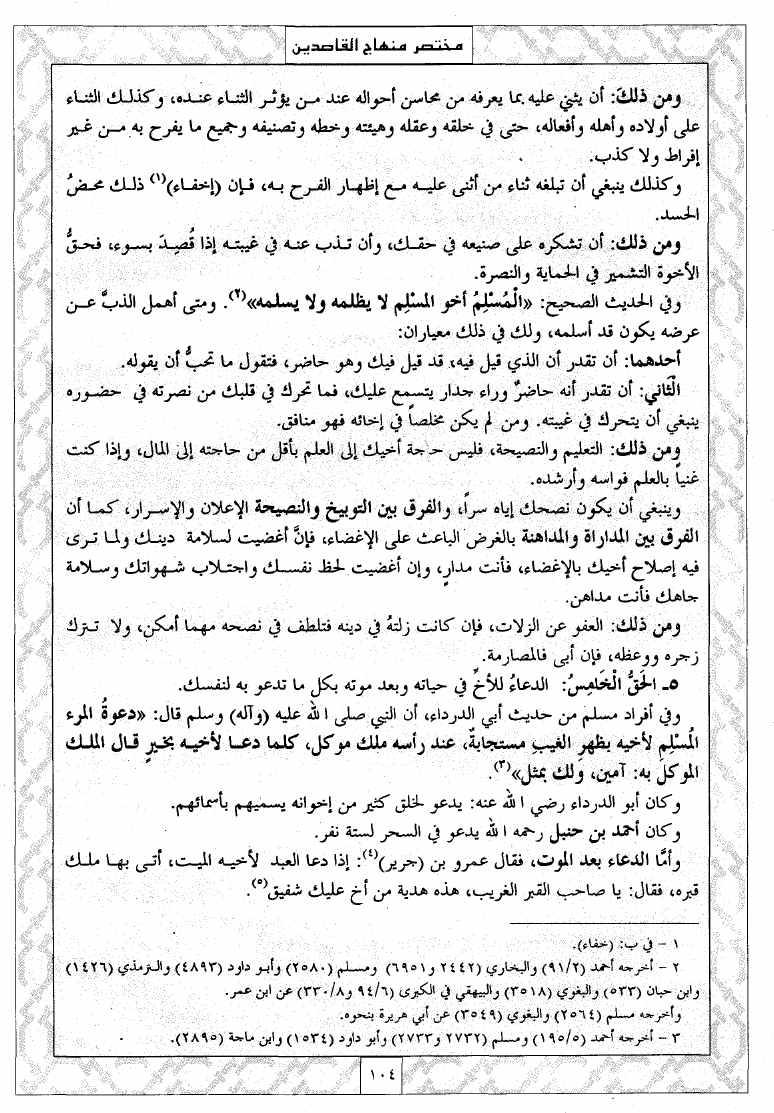 مختصر منهاج القاصدين
ومن ذلك: أن يثني عليه بما يعرفه من محاسن أحواله عند من يؤثر الثناء عنده، وكذلك الثناء
على أولاده وأهله وأفعاله، حتى في خلقه وعقله وهيئته وخطه وتصنيفه وجميع ما يفرح به من غير
إفراط ولا كذب.
وكذلك ينبغي أن تبلغه ثناء من أثنى عليه مع إظهار الفرح به، فإن (إخفاء)(١) ذلك محضُ
الحسد.
ومن ذلك: أن تشكره على صنيعه في حقك، وأن تذب عنه في غيبته إذا قُصِدَ بسوء، فحقُّ
الأخوة التشمير في الحماية والنصرة.
وفي الحديث الصحيح: «الْمُسْلِمُ أخو المسْلِم لا يظلمه ولا يسلمه»(٢). ومتى أهمل الذبَّ عن
عرضه يكون قد أسلمه، ولك في ذلك معياران:
أحدهما: أن تقدر أن الذي قيل فيه، قد قيل فيك وهو حاضر، فتقول ما تحبُّ أن يقوله.
الثَّاني: أن تقدر أنه حاضرٌ وراء جدار يتسمع عليك، فما تحرك في قلبك من نصرته في حضوره
ينبغي أن يتحرك في غيبته. ومن لم يكن مخلصاً في إخائه فهو منافق.
ومن ذلك: التعليم والنصيحة، فليس حاجة أخيك إلى العلم بأقل من حاجته إلى المال، وإذا كنت
غنياً بالعلم فواسه وأرشده.
وينبغي أن يكون نصحك إياه سراً، والفرق بين التوبيخ والنصيحة الإعلان والإسرار، كما أن
الفرق بين المداراة والمداهنة بالغرض الباعث على الإغضاء، فإنَّ أغضيت لسلامة دينك ولما ترى
فيه إصلاح أخيك بالإغضاء، فأنت مدارٍ، وإن أغضيت لحظ نفسك واجتلاب شهواتك وسلامة
جاهك فأنت مداهن.
ومن ذلك: العفو عن الزلات، فإن كانت زلتهُ في دينه فتلطف في نصحه مهما أمكن، ولا تترك
زجره ووعظه، فإن أبى فالمصارمة.
٥ـ الحَقُّ الْخَامِسُ: الدعاءُ للأخِّ في حياته وبعد موته بكل ما تدعو به لنفسك.
وفي أفراد مسلم من حديث أبي الدرداء، أن النبي صلى الله عليه (وآله) وسلم قال: «دعوةُ المرء
المُسْلِمِ لأخيه بظهرِ الغيبِ مستجابةٌ، عند رأسه ملك موكل، كلما دعا لأخيه بخيرٍ قال الملك
الموكلُ به: آمين، ولك بمثل»(٣).
وكان أبو الدرداء رضي الله عنه: يدعو لخلق كثير من إخوانه يسميهم بأسمائهم.
وكان أحمد بن حنبل رحمه الله يدعو في السحر لستة نفر.
وأمَّا الدعاء بعد الموت، فقال عمرو بن (جرير)(٤): إذا دعا العبد لأخيه الميت، أتى بها ملك
قبره، فقال: يا صاحب القبر الغريب، هذه هدية من أخ عليك شفيق(٥).
١ - في ب: (خفاء).
٢ - أخرجه أحمد (٩١/٢) والبخاري (٢٤٤٢ و٦٩٥١) ومسلم (٢٥٨٠) وأبو داود (٤٨٩٣) والترمذي (١٤٢٦)
وابن حبان (٥٣٣) والبغوي (٣٥١٨) والبيهقي في الكبرى (٩٤/٦ و٣٣٠/٨) عن ابن عمر.
وأخرجه مسلم (٢٥٦٤) والبغوي (٣٥٤٩) عن أبي هريرة بنحوه.
٣ - أخرجه أحمد (١٩٥/٥) ومسلم (٢٧٣٢ و٢٧٣٣) وأبو داود (١٥٣٤) وابن ماجة (٢٨٩٥).
١٠٤